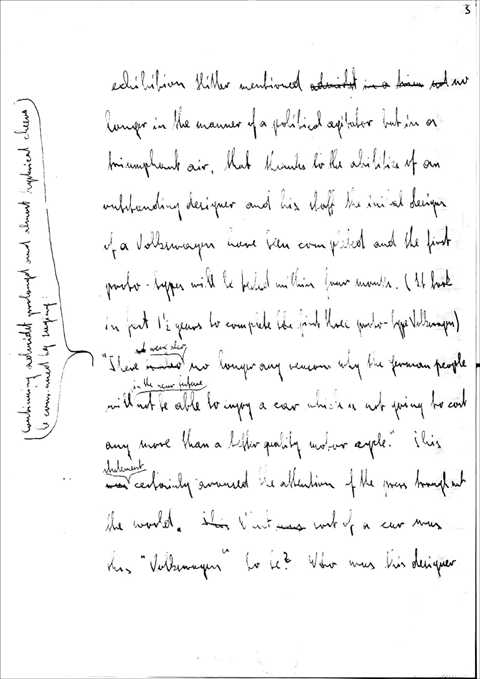 3
exhibition Hitler mentioned admidst in a no
longer in the manner of a political agitator but in a
triumphant air, that thanks to the abilities of an
outstanding designer and his staff the initial designs
of a Volkswagen have been completed and the first
proto-types will be tested within four months. (It took
in fact 1½ years to complete the first three proto-type Volkswagen)
"There no longer any reasons why the german people
in the near future
will not be able to enjoy a car which is not going to cost
any more than a better quality motor cycle." This
statement
was certainly aroused the attention of the press throughout
the world. This What was sort of a car was
this "Volkswagen" to be? Who was this designer
Continuing admidst prolonged and almost hysterical cheers
he by saying: